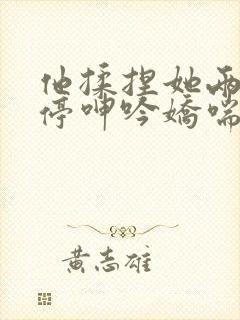 他揉捏她两
停呻吟娇喘
黄志雄